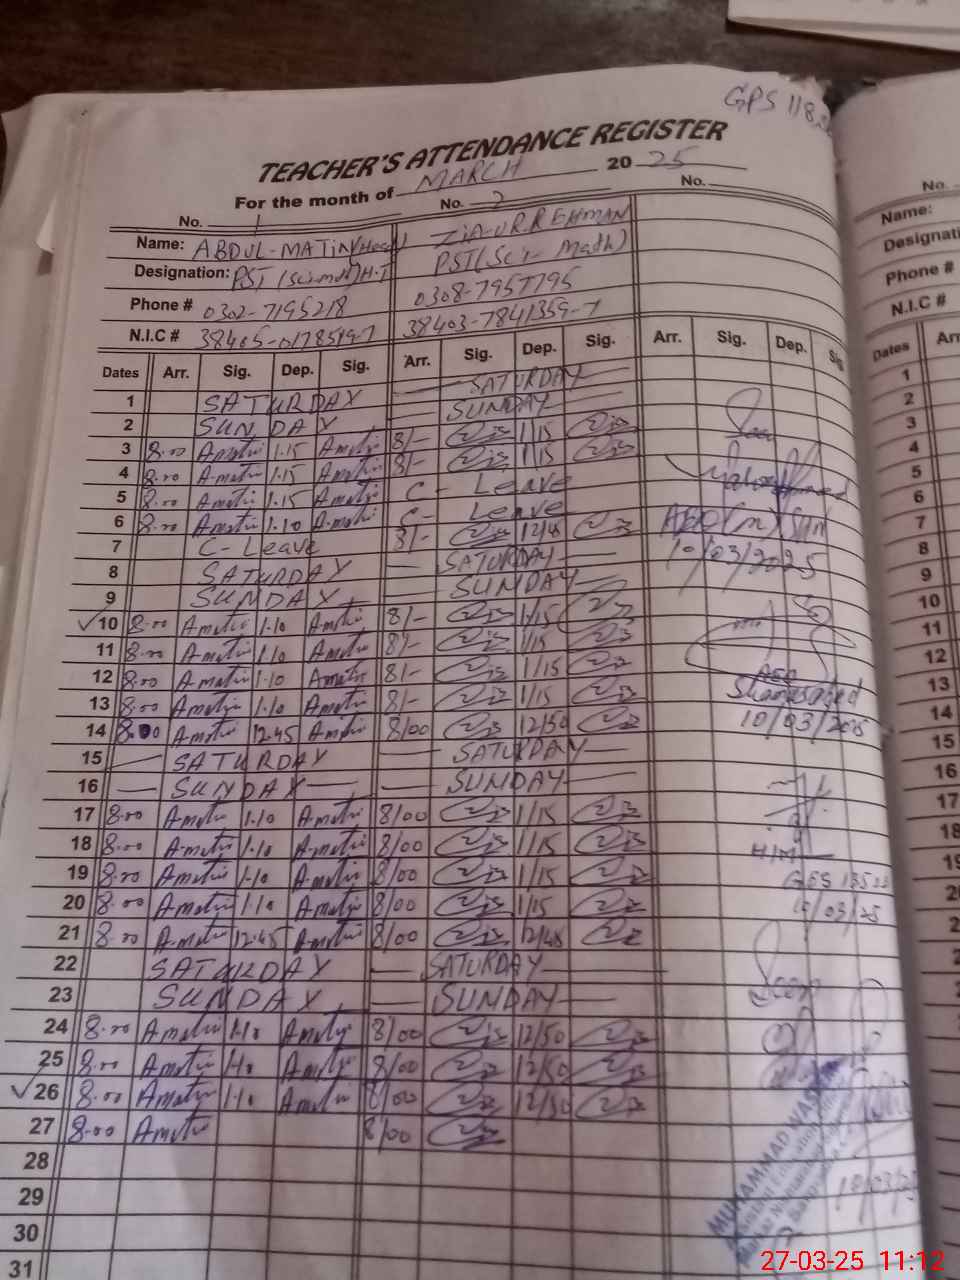 GPS 118
TEACHER'S ATTENDANCE REGISTER
For the month of MARCH 20 25
No. 1 No. 2 No.
Name: ABDUL-MATIN (Head) ZIA-UR-REHMAN
Designation: PST (Sci-math) H.T PST (Sci- Math)
Phone # 0302-7195218 0308-7957795
N.I.C # 38405-0178519-7 38403-7841359-7
Dates Arr. Sig. Dep. Sig. Arr. Sig. Dep. Sig. Arr. Sig. Dep. Sig.
1 SATURDAY SATURDAY
2 SUNDAY SUNDAY
3 8.00 Amatin 1.15 Amatin 8/- 1/15
4 8.00 Amatin 1.15 Amatin 8/- 1/15
5 8.00 Amatin 1.15 Amatin C- Leave
6 8.00 Amatin 1.10 Amatin C- Leave
7 C- Leave 8/- 12/48
8 SATURDAY SATURDAY
9 SUNDAY SUNDAY
10 8.00 Amatin 1.10 Amatin 8/- 1/15
11 8.00 Amatin 1.10 Amatin 8/- 1/15
12 8.00 Amatin 1.10 Amatin 8/- 1/15
13 8.00 Amatin 1.10 Amatin 8/- 1/15
14 8.00 Amatin 12.45 Amatin 8/00 12/50
15 SATURDAY SATURDAY
16 SUNDAY SUNDAY
17 8.00 Amatin 1.10 Amatin 8/00 1/15
18 8.00 Amatin 1.10 Amatin 8/00 1/15
19 8.00 Amatin 1.10 Amatin 8/00 1/15
20 8.00 Amatin 1.10 Amatin 8/00 1/15
21 8.00 Amatin 12.45 Amatin 8/00 12/48
22 SATURDAY SATURDAY
23 SUNDAY SUNDAY
24 8.00 Amatin 1.10 Amatin 8/00 12/50
25 8.00 Amatin 1.10 Amatin 8/00 12/50
26 8.00 Amatin 1.10 Amatin 8/00 12/50
27 8.00 Amatin 8/00
28
29
30
31
Seen
10/03/2025
AEO
10/03/2025
H/M
GES
10/03/25
Seen
MUHAMMAD
Education
10/03/25
No.
Name:
Designati
Phone #
N.I.C #
Dates Arr
1
2
3
4
5
6
7
8
9
10
11
12
13
14
15
16
17
18
19
27-03-25 11:12